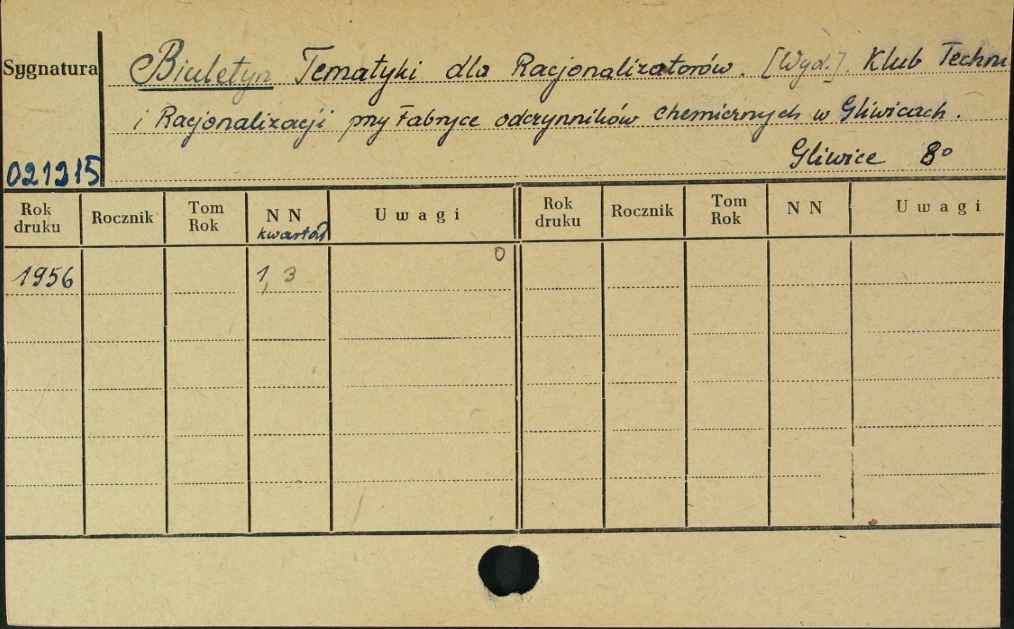 Sygnatura
Biuletyn Tematyki dla Racjonalizatorów. [Wyd.]. Klub Techni
i Racjonalizacji przy Fabryce odczynników chemicznych w Gliwicach.
Gliwice 8°
021215
Rok druku Rocznik Tom Rok N N kwartał Uwagi Rok druku Rocznik Tom Rok N N Uwagi
0
1956 1, 3